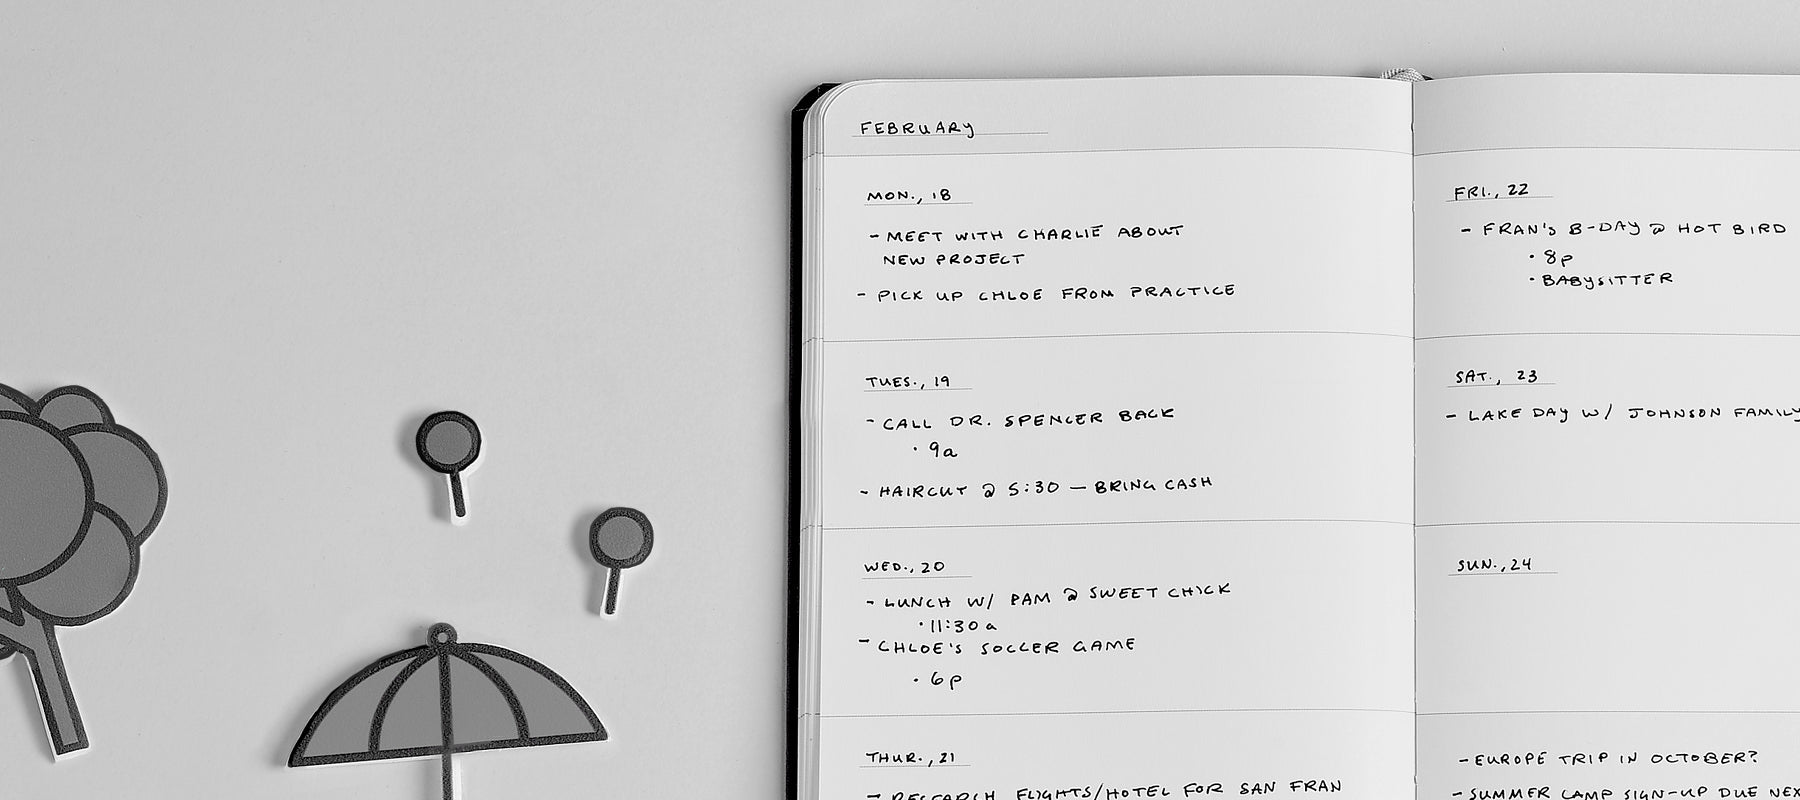 FEBRUARY
MON., 18
- MEET WITH CHARLIE ABOUT
NEW PROJECT
- PICK UP CHLOE FROM PRACTICE
TUES., 19
- CALL DR. SPENCER BACK
• 9a
- HAIRCUT @ 5:30 — BRING CASH
WED., 20
- LUNCH W/ PAM @ SWEET CHICK
• 11:30a
- CHLOE'S SOCCER GAME
• 6p
THUR., 21
- RESEARCH FLIGHTS/HOTEL FOR SAN FRAN
FRI., 22
- FRAN'S B-DAY @ HOT BIRD
• 8p
• BABYSITTER
SAT., 23
- LAKE DAY W/ JOHNSON FAMILY
SUN., 24
- EUROPE TRIP IN OCTOBER?
- SUMMER CAMP SIGN-UP DUE